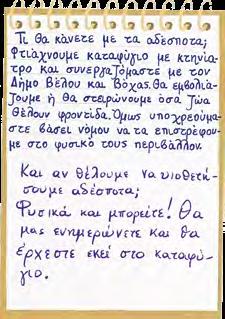 Τι θα κάνετε με τα αδέσποτα;
Φτιάχνουμε καταφύγιο με κτηνία-
τρο και συνεργαζόμαστε με τον
Δήμο Βέλου και Βόχας. Θα εμβολιά-
ζουμε ή θα στειρώνουμε όσα ζώα
θέλουν φροντίδα. Όμως υποχρεούμα-
στε βάσει νόμου να τα επιστρέφου-
με στο φυσικό τους περιβάλλον.
Και αν θέλουμε να υιοθετή-
σουμε αδέσποτα;
Φυσικά και μπορείτε! Θα
μας ενημερώνετε και θα
έρχεστε εκεί στο καταφύ-
γιο.